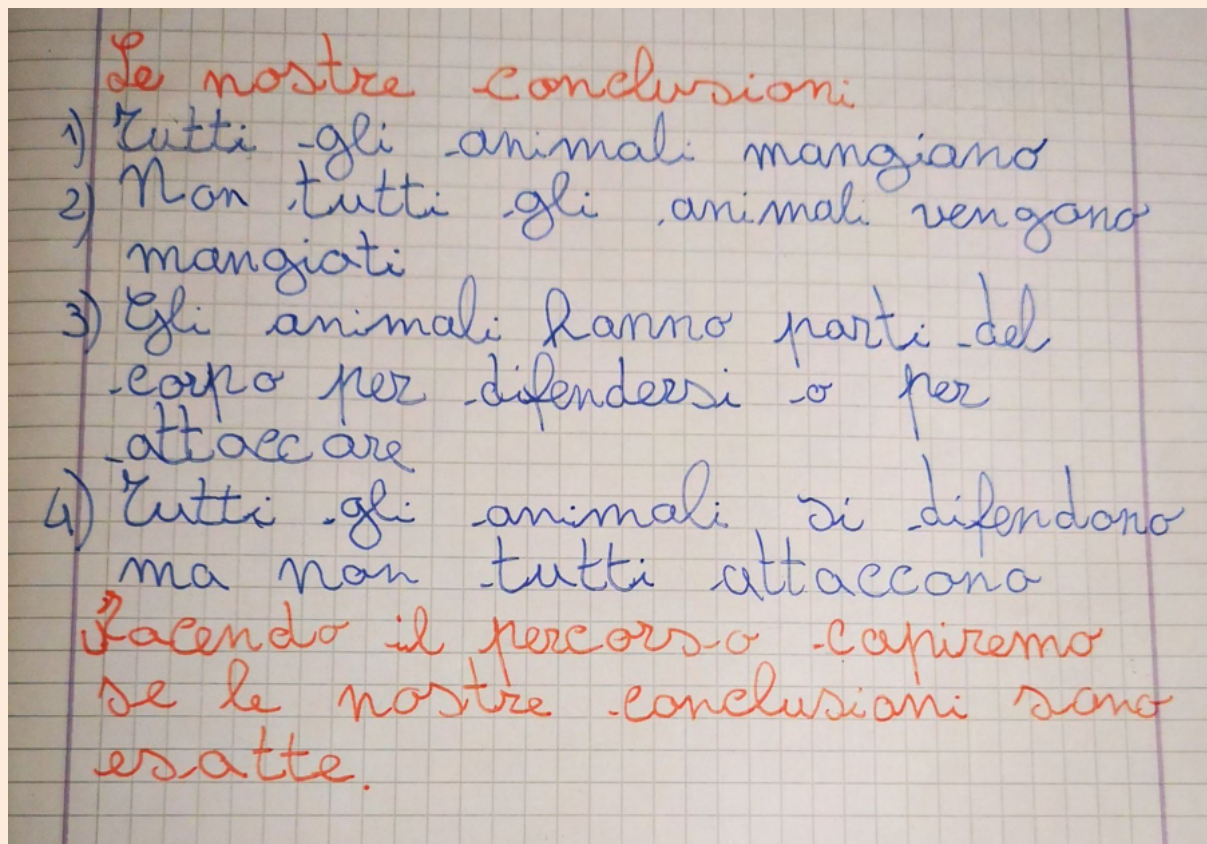 Le nostre conclusioni
1) Tutti gli animali mangiano
2) Non tutti gli animali vengono
mangiati
3) Gli animali hanno parti del
corpo per difendersi o per
attaccare
4) Tutti gli animali si difendono
ma non tutti attaccono
Facendo il percorso capiremo
se le nostre conclusioni sono
esatte.